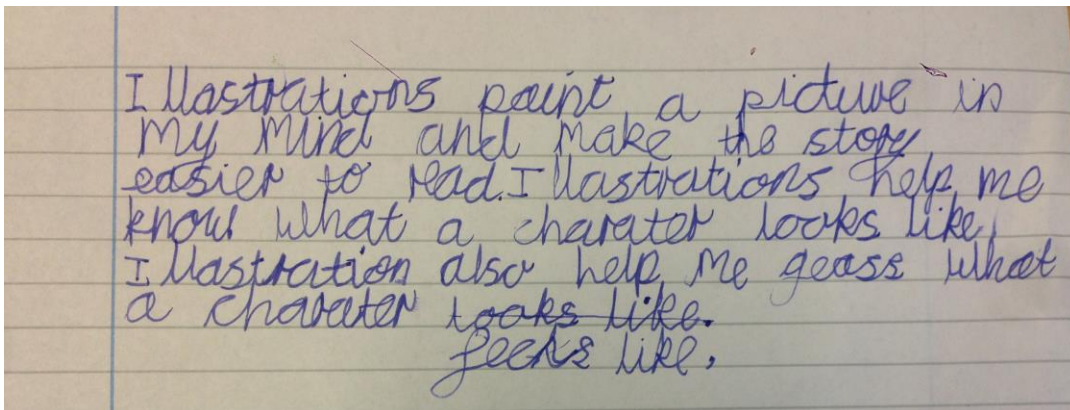 Illastrations paint a picture in
my mind and make the story
easier to read. Illastrations help me
know what a charater looks like.
Illastration also help me geass what
a charater looks like.
feels like.